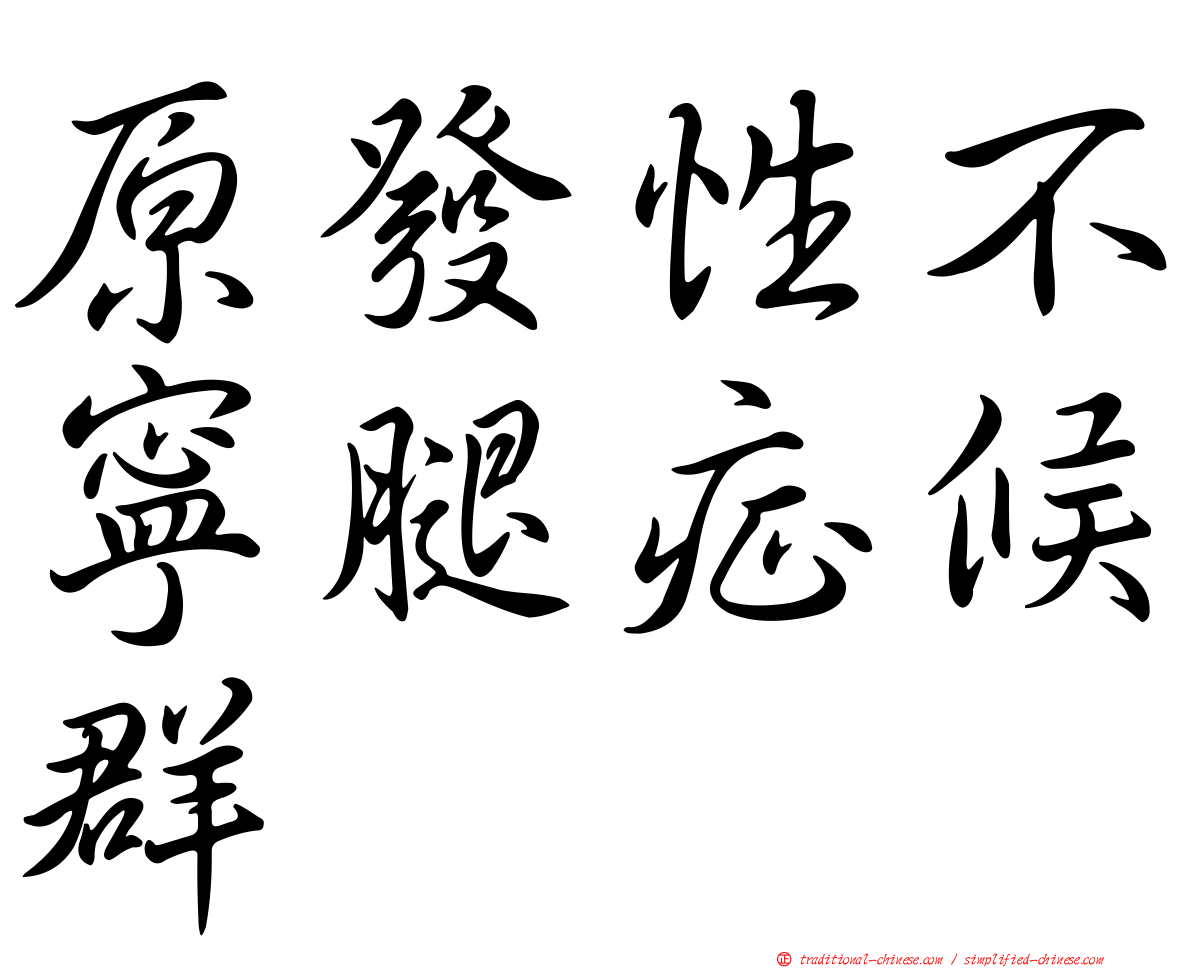 原發性不
寧腿症候
群
㊣ traditional-chinese.com / simplified-chinese.com